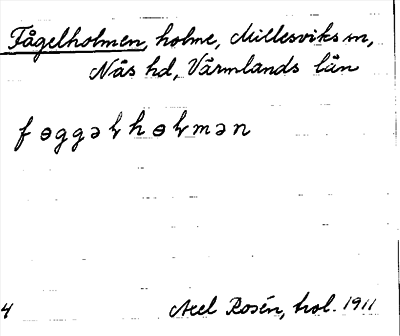 Fågelholmen, holme, Millesviks sn,
Näs hd, Värmlands län
fɵggəɽhɵɽmən
4
Axel Rosén, trol. 1911